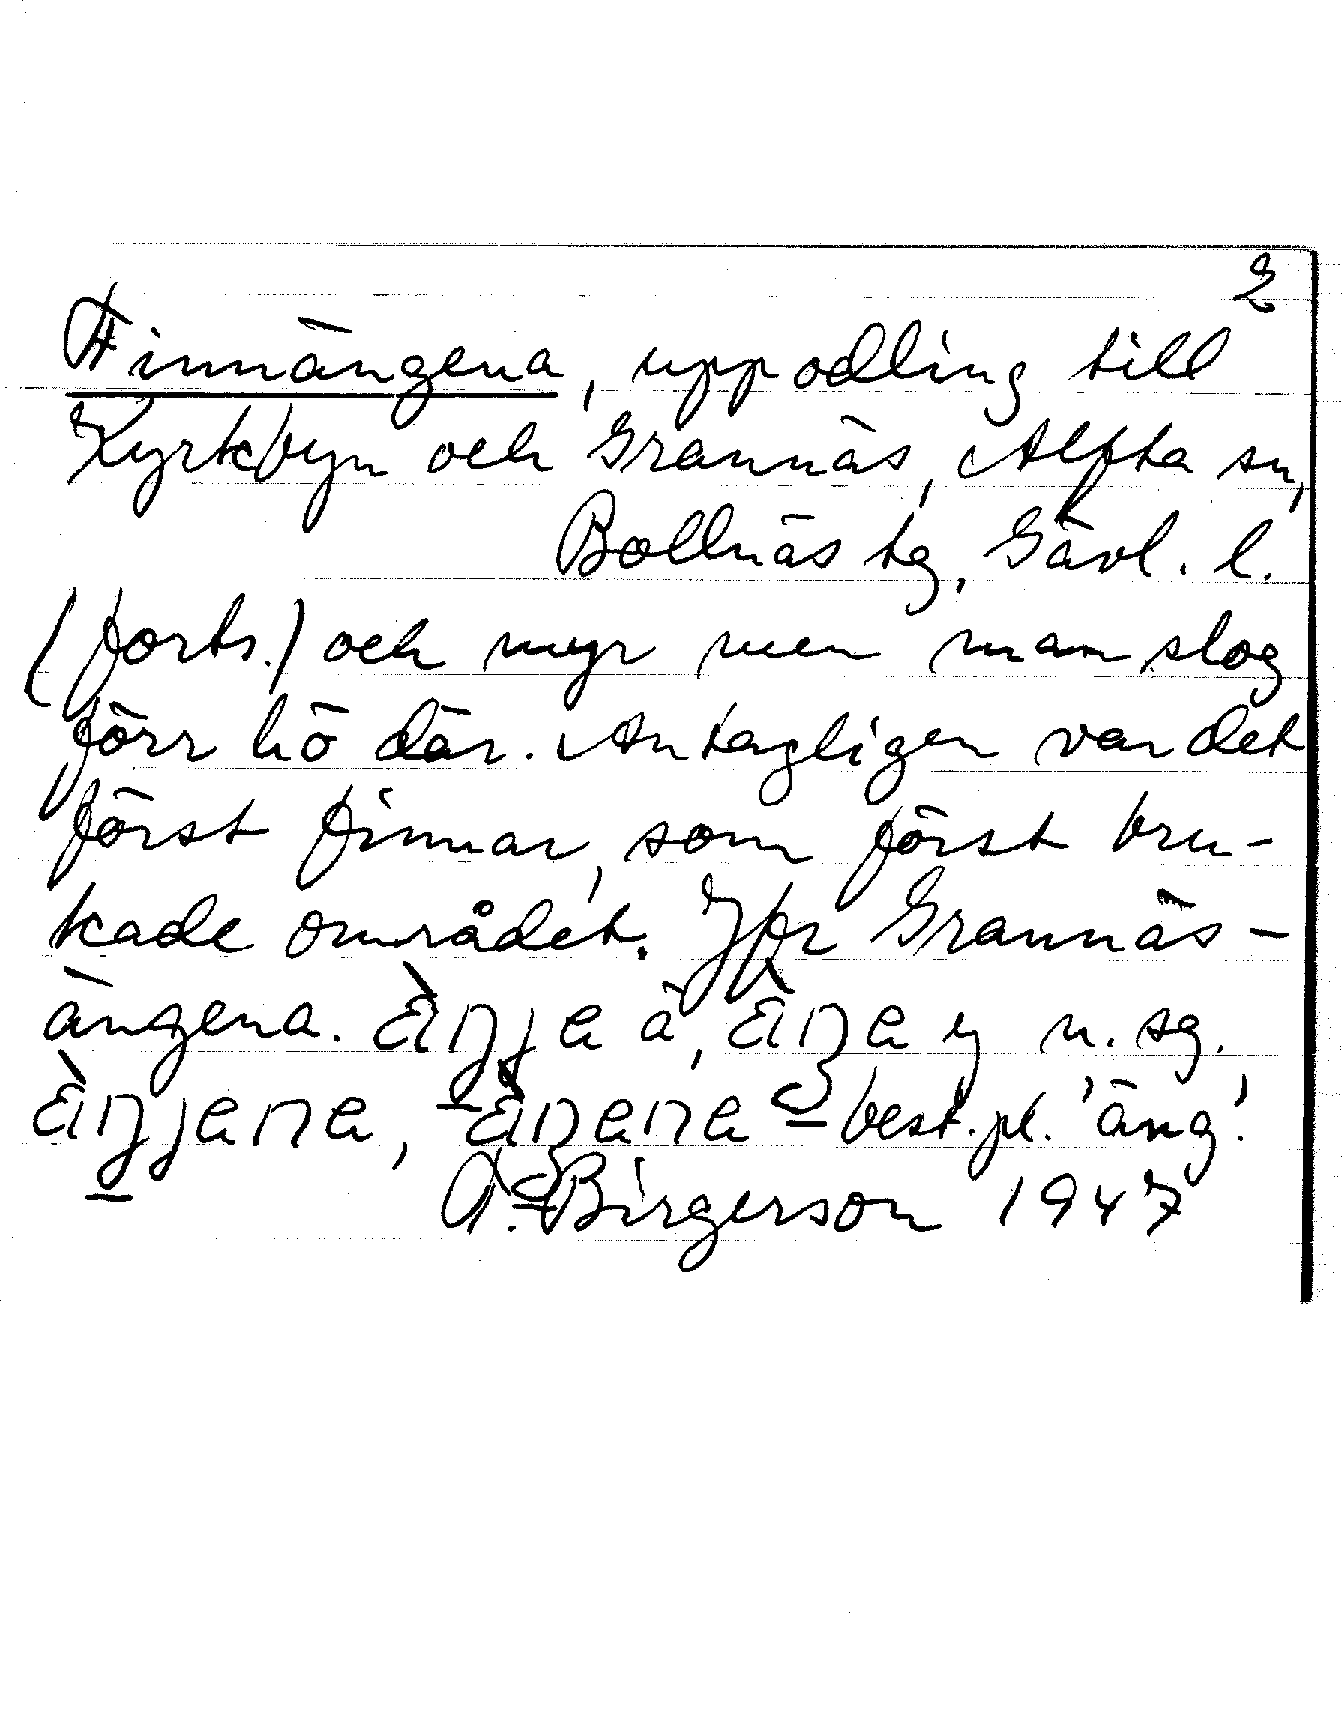 2
Finnängena, uppodling till
Kyrkbyn och Grannäs, Alfta sn,
Bollnäs tg, Gävl. l.
(forts.) och myr men man slog
förr hö där. Antagligen var det
först finnar, som först bru-
kade området. Jfr Grannäs-
ängena. äŋja ä, äŋa ej n. sg.
äŋjana, -äŋana best. pl. 'äng'.
A. Birgerson 1947